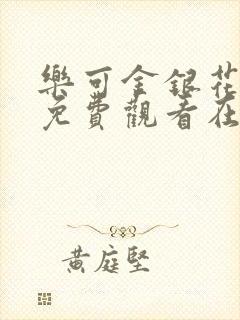 樂可金銀花
免費觀看在
黃庭堅